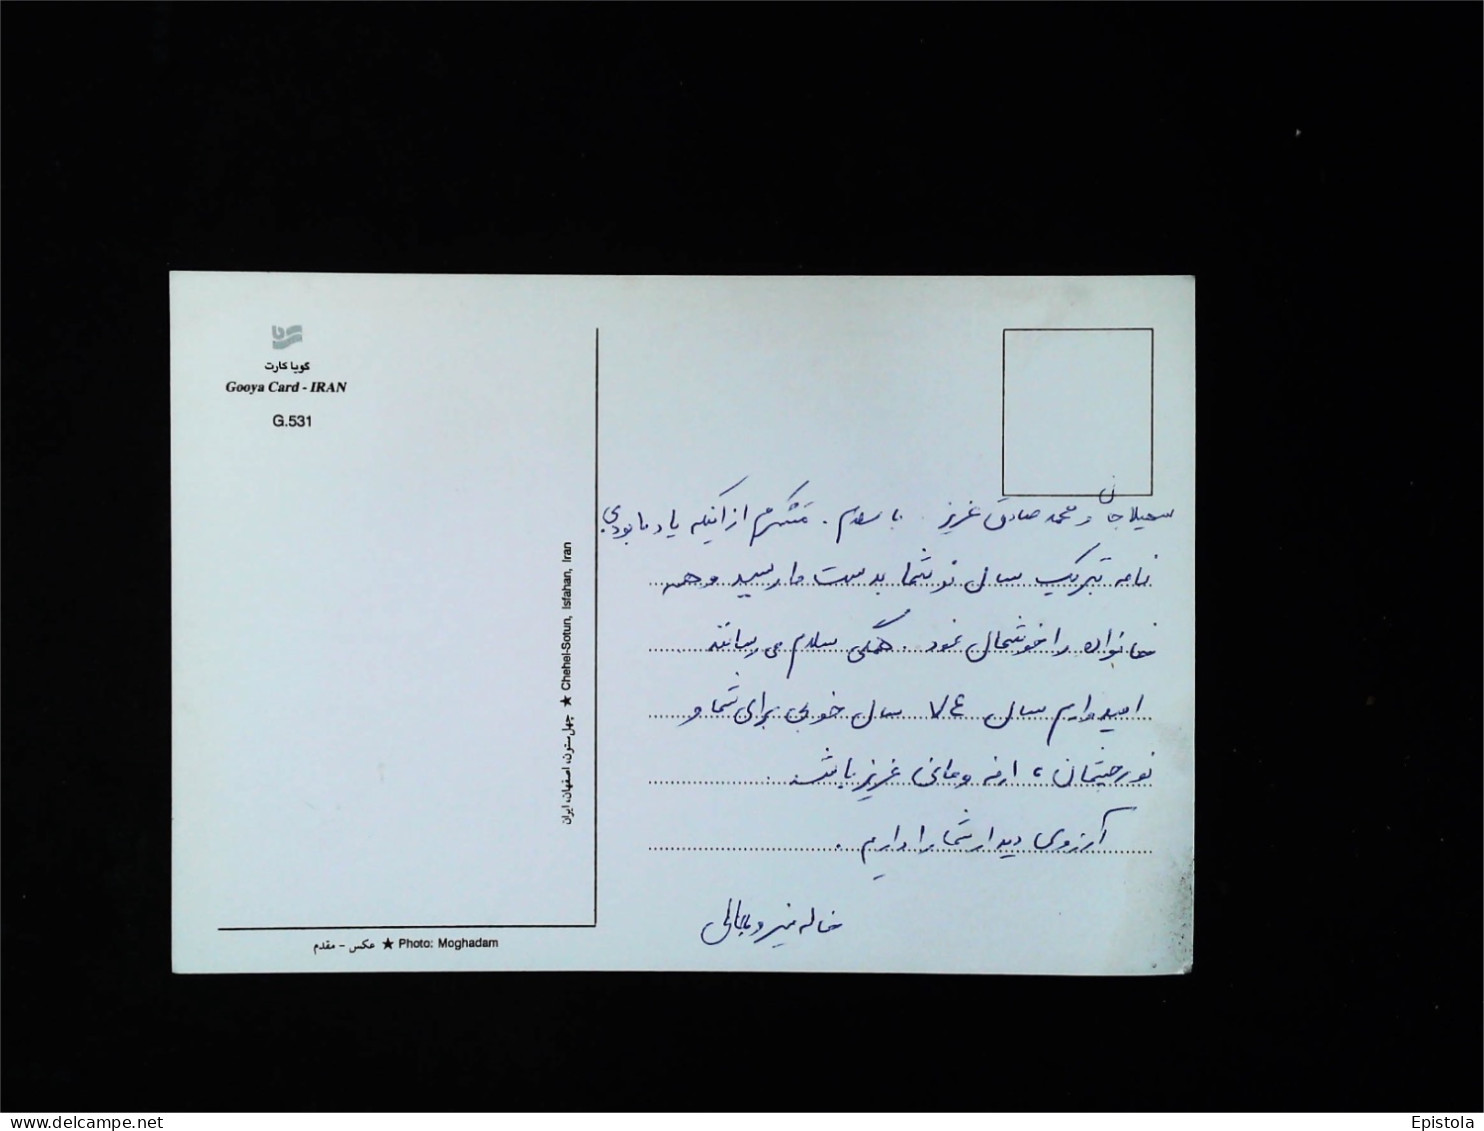 گویا کارت
Gooya Card - IRAN
G.531
چهل ستون، اصفهان، ایران ★ Chehel-Sotun, Isfahan, Iran
عکس - مقدم ★ Photo: Moghadam
سهیلا جان و محمد صادق عزیز. با سلام. متشکرم از اینکه یاد ما بودی
نامه تبریک سال نو شما بدست ما رسید و همه
خانواده را خوشحال نمود. همگی سلام می رسانند.
امیدوارم سال ۷۴ سال خوبی برای شما و
نورچشمان، و عزیز باشد.
آرزوی دیدار شما را دارم.
خاله
delcampe.net
Epistola